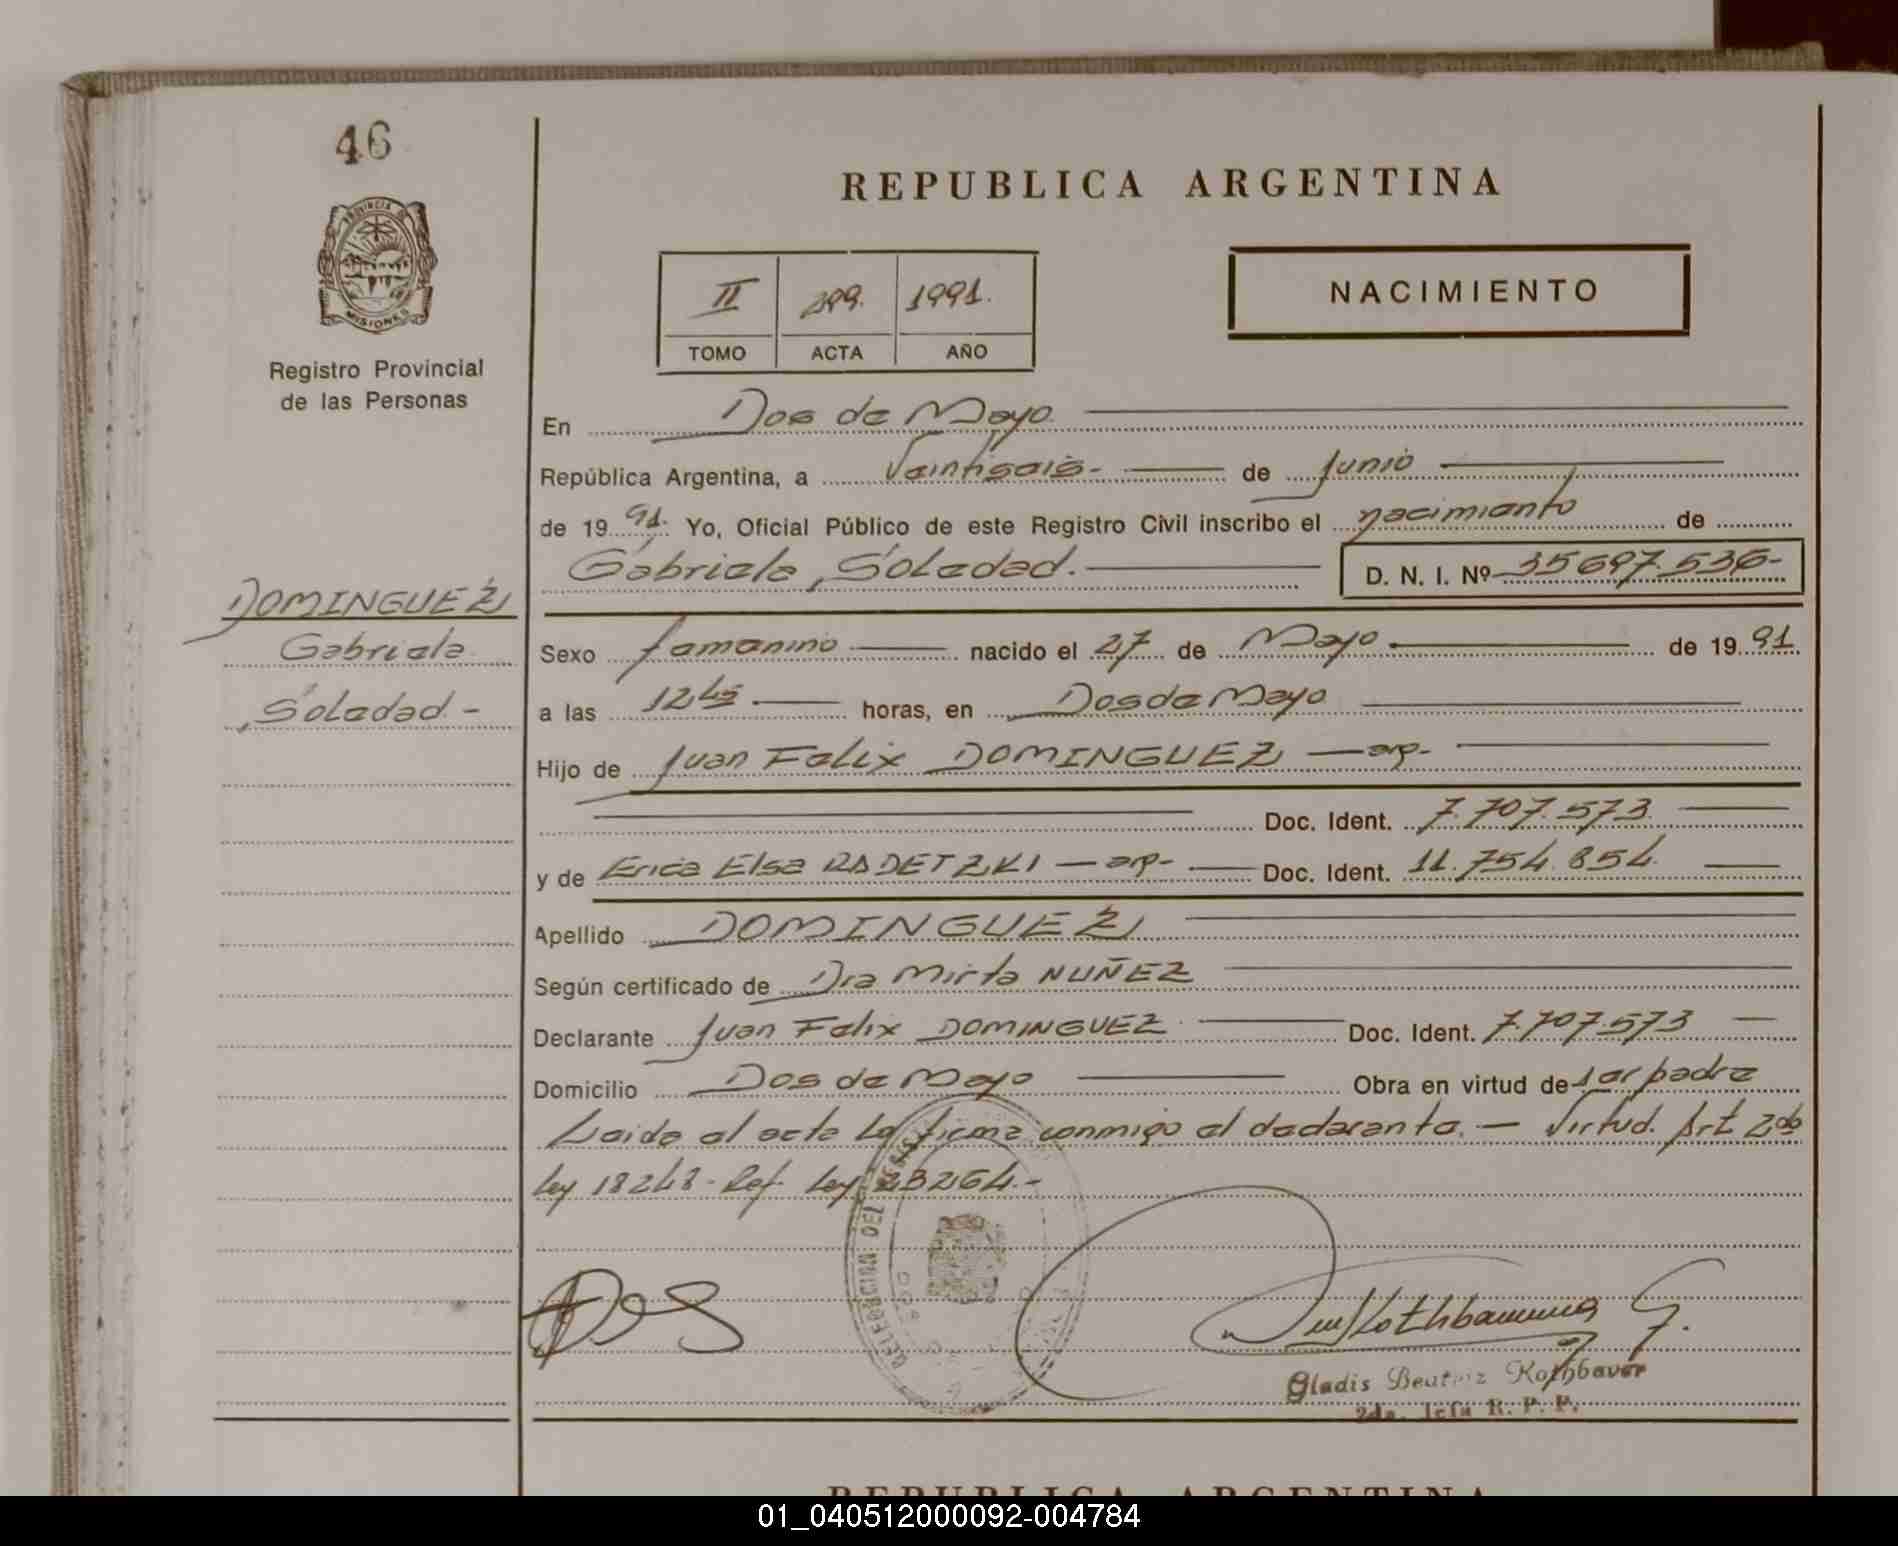 46
PROVINCIA DE
MISIONES
Registro Provincial
de las Personas
DOMINGUEZ
Gabriela
Soledad -
REPUBLICA ARGENTINA
II 299. 1991.
TOMO ACTA AÑO
NACIMIENTO
En Dos de Mayo
República Argentina, a Veintiseis- de Junio
de 19 91. Yo, Oficial Público de este Registro Civil inscribo el nacimiento de
Gabriela, Soledad. D. N. I. Nº 35697.536-
Sexo femenino nacido el 27 de Mayo de 19 91
a las 12 45 horas, en Dos de Mayo
Hijo de Juan Felix DOMINGUEZ
Doc. Ident. 7.707.573
y de Erica Elsa RADETZKI Doc. Ident. 11.754.854
Apellido DOMINGUEZ
Según certificado de Dra Mirta NUÑEZ
Declarante Juan Felix DOMINGUEZ Doc. Ident. 7.707.573
Domicilio Dos de Mayo Obra en virtud de ser padre
Leida el acta la firma conmigo el declarante. - Virtud. Art 2do
Ley 18248 - Ref. Ley 23264.-
DELEGACION DEL
Gladis Beatriz Kothbaver
2da. Jefa R. P. P.
REPUBLICA ARGENTINA
01_040512000092-004784